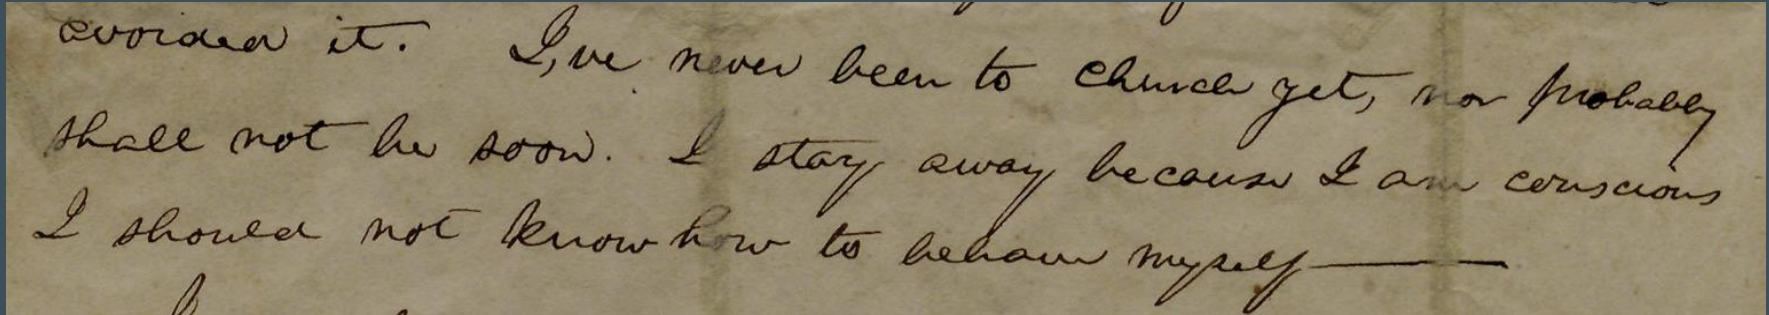 avoided it. I,ve never been to church yet, nor probably
shall not be soon. I stay away because I am conscious
I should not know how to behave myself—